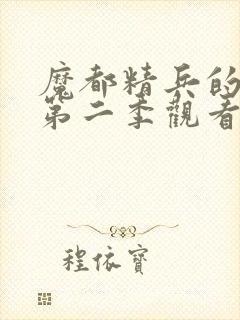 魔都精兵的
第二季觀看
程依寶